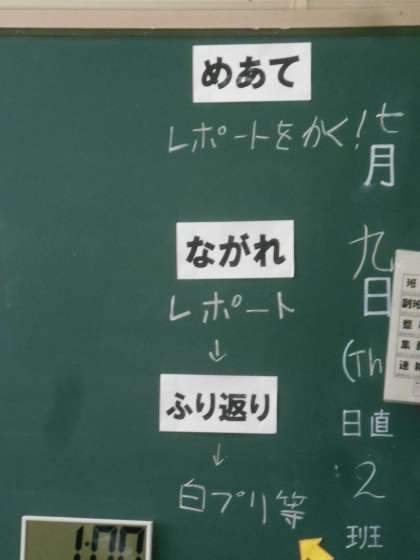 めあて
レポートをかく!
ながれ
レポート
↓
ふり返り
↓
白プリ等
七月九日(Th
日直:2班
班
副班
集
連